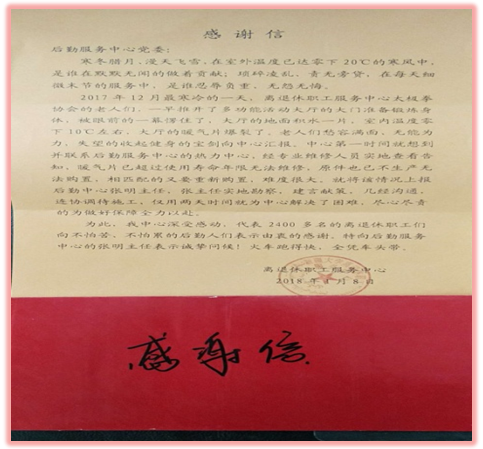 感谢信
后勤服务中心党委：
寒冬腊月，漫天飞雪，在室外温度已达零下20℃的寒风中，
是谁在默默无闻的做着贡献；琐碎凌乱、责无旁贷，在每天细
微末节的服务中，是谁忍辱负重、无怨无悔。
2017年12月最寒冷的一天，离退休职工服务中心太极拳
协会的老人们，一早推开了多功能活动大厅的大门准备锻炼身
体，被眼前的一幕愣住了，大厅的地面积水一片，室内温度零
下10℃左右，大厅的暖气片爆裂了。老人们愁容满面，无能为
力，失望的收起健身的宝剑向中心汇报。中心第一时间就想到
并联系后勤服务中心的热力中心，经专业维修人员实地查看告
知，暖气片已超过使用寿命年限无法维修，原件也已不生产无
法购置，相匹配的又要重新购置，难度很大，就将该情况上报
后勤中心张明主任，张主任实地勘察，建言献策，几经沟通，
连协调待施工，仅用两天时间就为中心解决了困难，尽心尽责
的为做好保障全力以赴。
为此，我中心深受感动，代表2400多名的离退休职工们
向不怕苦、不怕累的后勤人们表示由衷的感谢，特向后勤服务
中心的张明主任表示诚挚问候！火车跑得快，全凭车头带。
离退休职工服务中心
2018年1月8日
感谢信